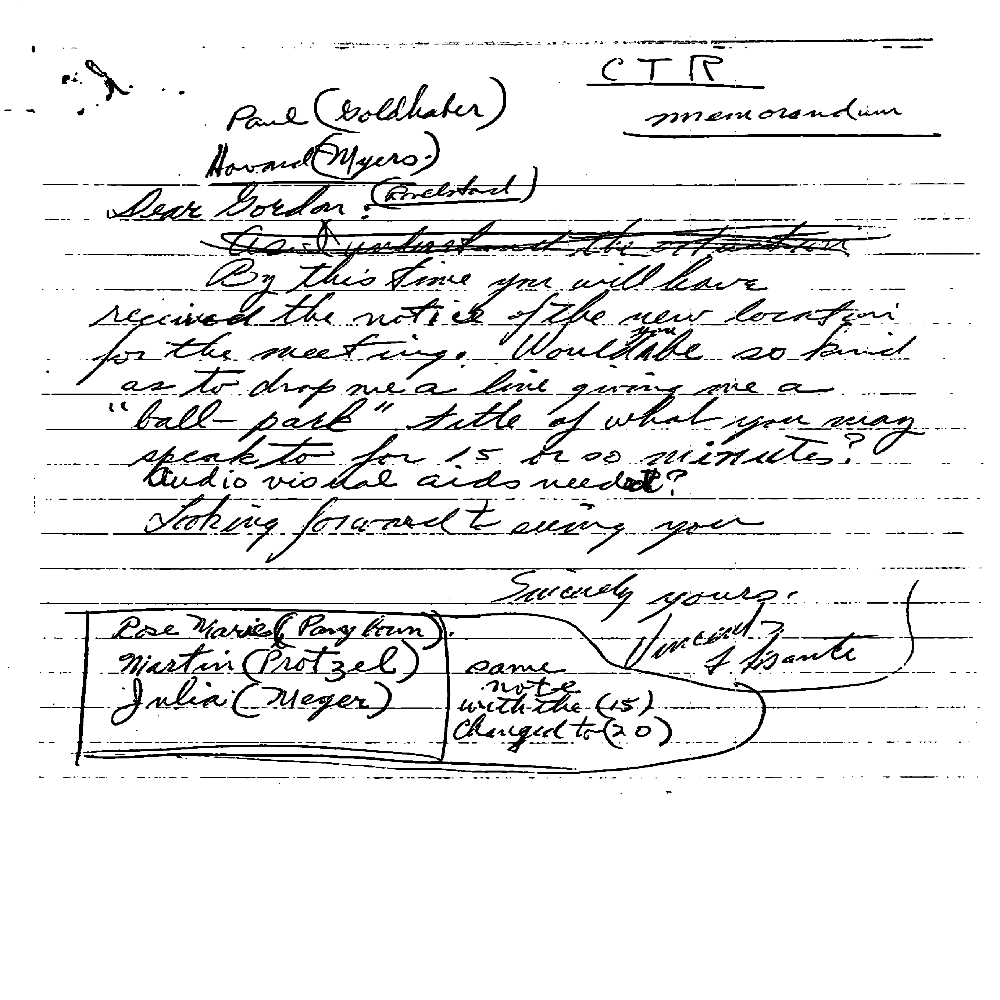 CTR
memorandum
Paul (Goldhaber)
Howard (Myers.)
Dear Gordon:
As I understand the situation
By this time you will have
received the notice of the new location
for the meeting. Would you be so kind
as to drop me a line giving me a
"ball-park" title of what you may
speak to for 15 or so minutes?
Audio visual aids needed?
Looking forward to seeing you
Sincerely yours.
Vincent
Lisanti
Rose Marie (Pangborn).
Martin (Protzel)
Julia (Meyer)
same
note
with the (15)
changed to (20)